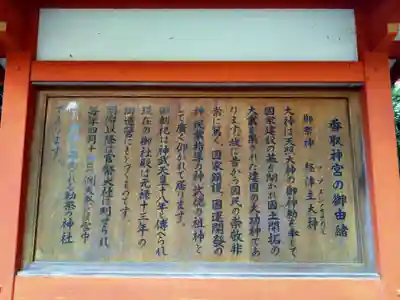 香取神宮の御由緒
御祭神 経津主大神
フツヌシノオオカミ
大神は天照大神の御神勅を奉じて
国家建設の基を開かれ国土開拓の
大業を果された建国の大功神であ
ります。故に昔から国民の崇敬非
常に篤く、国家鎮護、国運開発の
神 民業指導の神 武徳の祖神と
して広く仰がれて居ります。
御創祀は神武天皇十八年と伝へられ
現在の御社殿は元禄十三年の
御造営にかゝるものです。
明治以降は官幣大社に列せられ
毎年四月十四日の例祭には宮中
される勅祭の神社
であります。